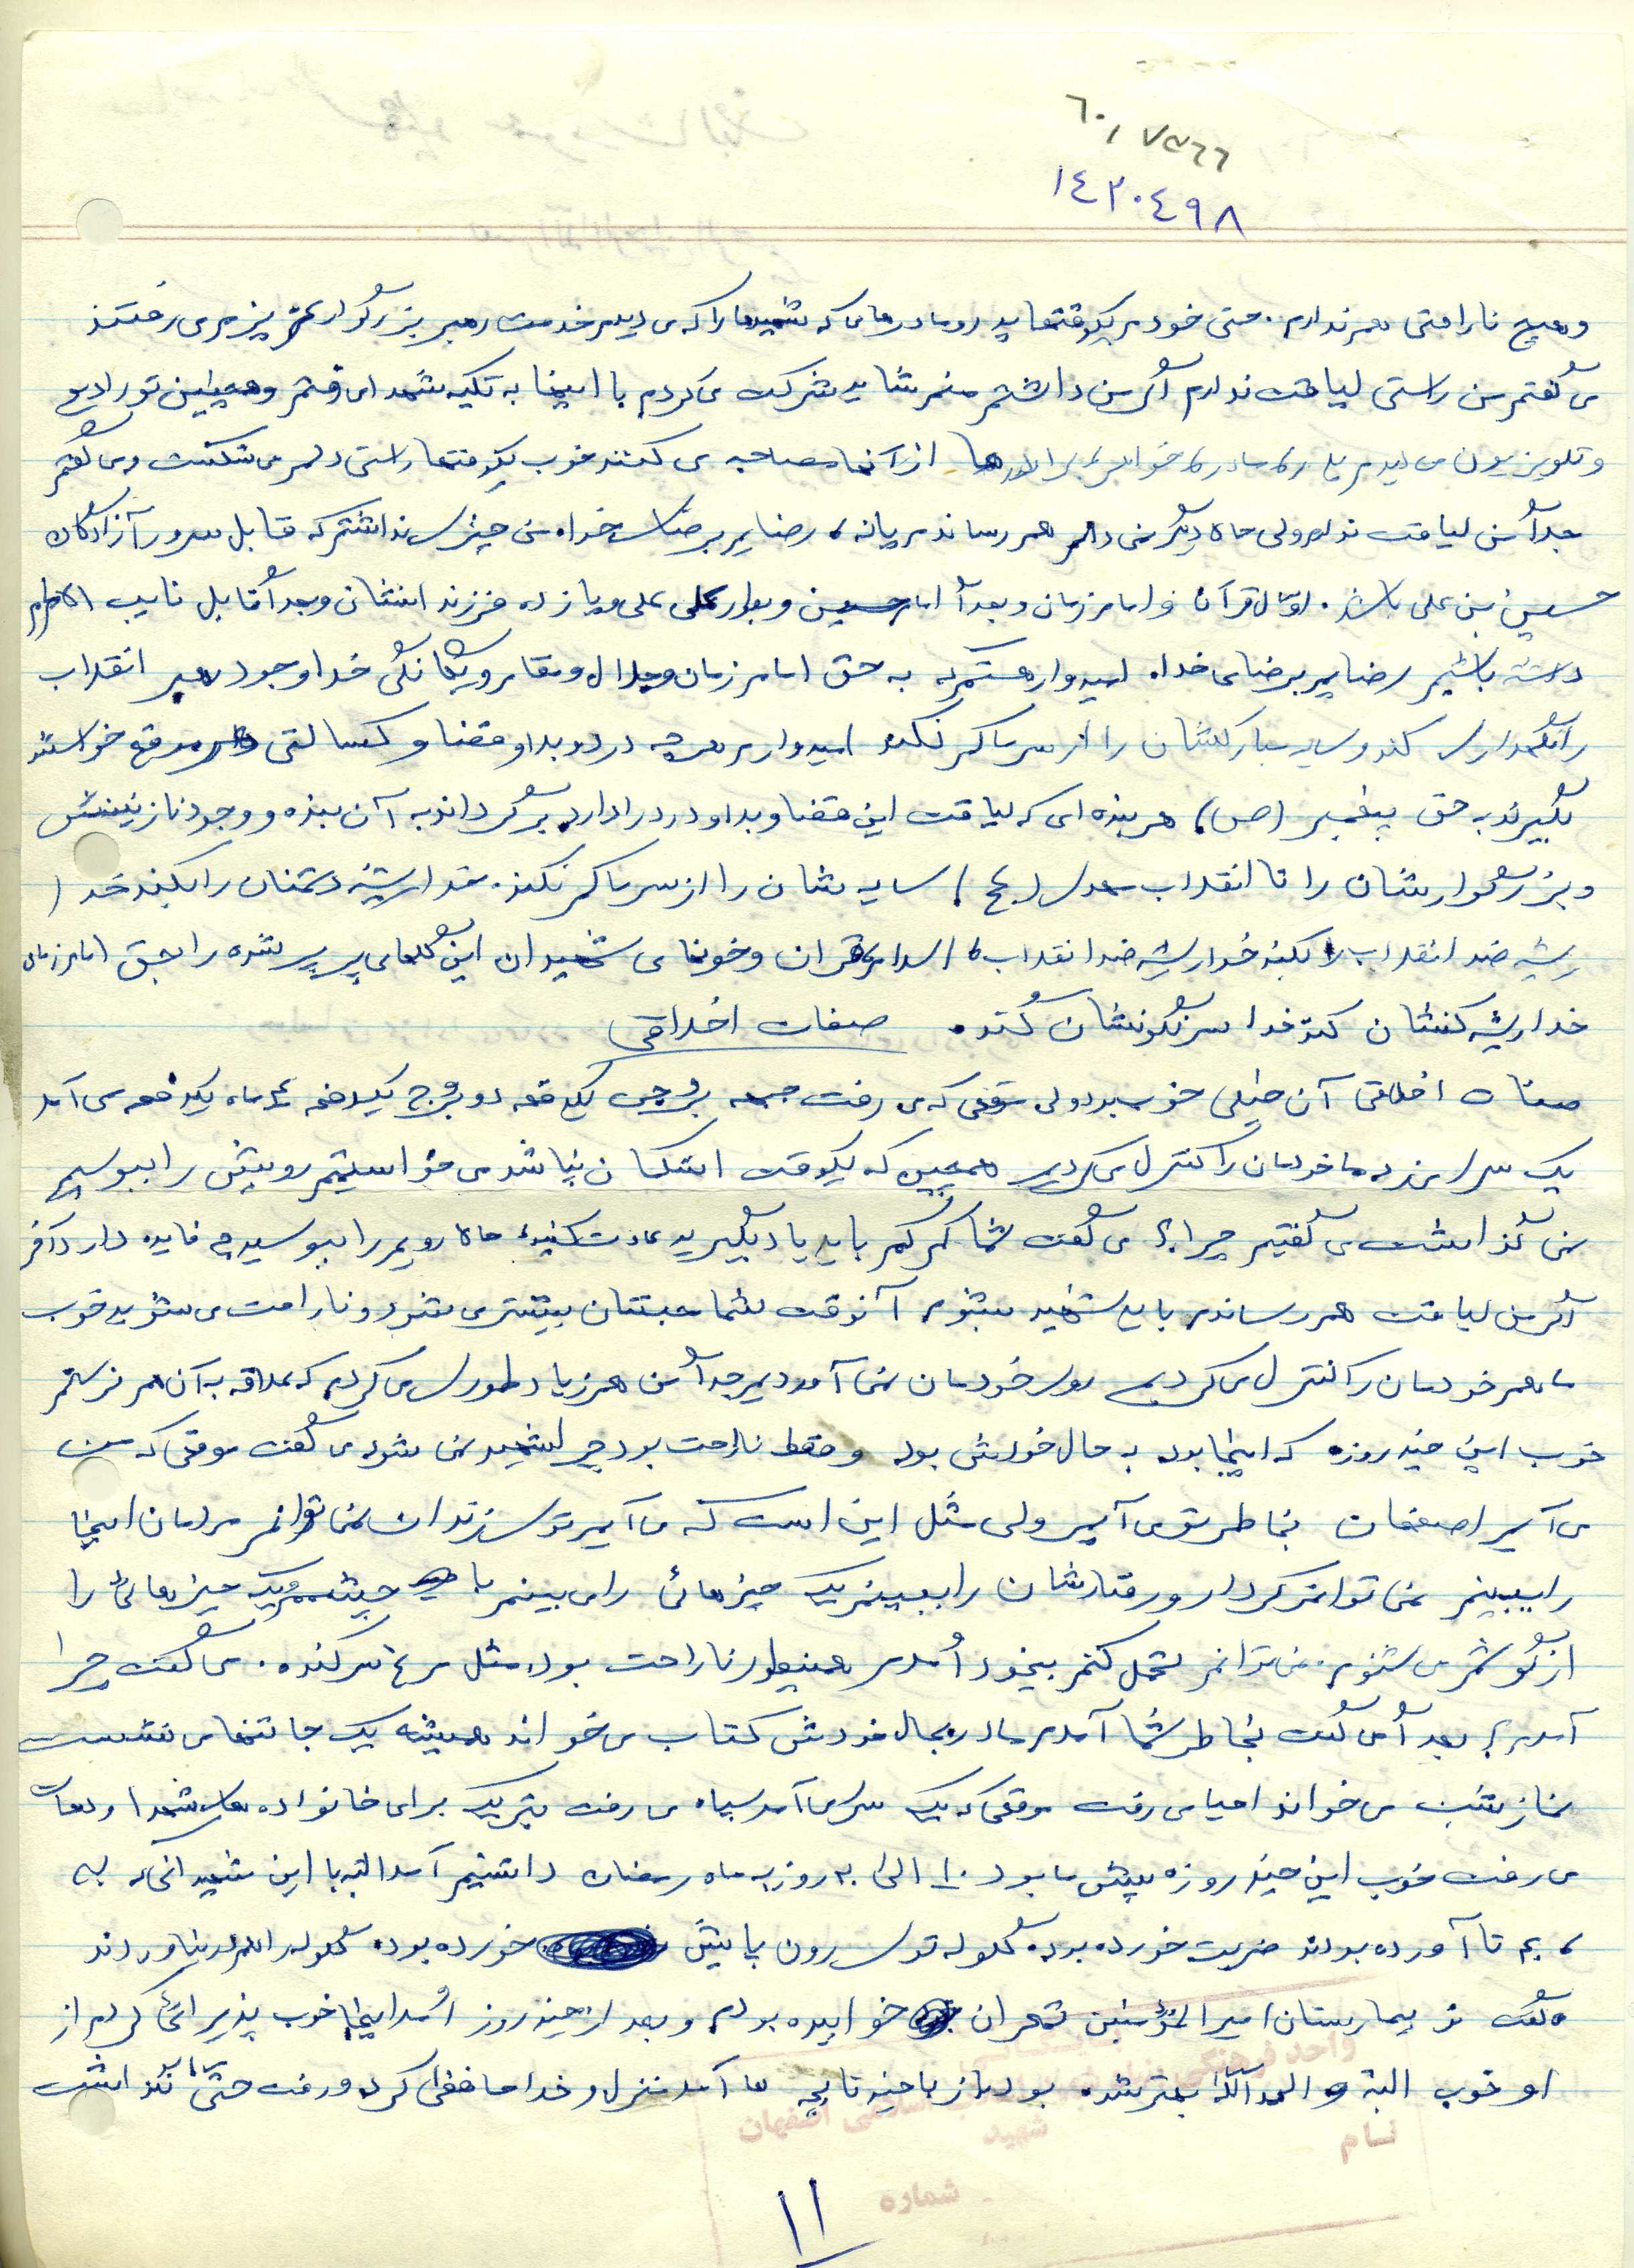 ۶۰۱۷۵۶۶
۱۴۲۰۴۹۸
و هیچ ناراحتی هم ندارم. حتی خودم یکوقتها پدر و مادرهای که شهیدها را که می دیدم خدمت رهبر بزرگوار عزیزم می رفتند
می گفتم من راستی لیاقت ندارم اگر من داشتم منم شاید شرکت می کردم با اینها به تکیه شهدا می رفتم و همچنین تو رادیو
و تلویزیون می دیدم پدر، مادر، خواهر، برادرها از آنها مصاحبه می کنند خوب یکوقتها راستی دلم می شکست و می گفتم
جداً من لیاقت ندارم ولی حالا دیگر نمی دانم هم رساندم یا نه، رضایم برضای خدا. من چیزی نداشتم که قابل سرور آزادگان
حسین بن علی باشد. اول قرآن و امام زمان و بعداً امام حسین و علی و یازده فرزندانشان و بعداً قابل نایب امام
داشته باشیم رضایم برضای خدا. امیدوار هستم که به حق امام زمان و جلال و مقام و یگانگی خدا وجود رهبر انقلاب
را نگهداری کند و سایه مبارکشان را از سر ما کم نکند امیدوارم هرچه درد و بلا و قضا و کسالتی در موقع خواستند
بگیرند به حق پیغمبر (ص)، هر بنده ای که لیاقت این قضا و بلا و درد را دارد برگرداند به آن بنده و وجود نازنینش
و بزرگوارشان را تا انقلاب مهدی (عج) سایه شان را از سر ما کم نکند. خدا ریشه دشمنان را بکند خدا
ریشه ضد انقلاب را بکند خدا ریشه ضد انقلاب، اسلام، قرآن و خونهای شهیدان این گلهای پرپر شده را بحق امام زمان
خدا ریشه کنشان کند خدا سرنگونشان کند. صفات اخلاقی
صفات اخلاقی آن خیلی خوب بود ولی موقعی که می رفت جبهه بروجن یکدفعه دو برج یکدفعه ۴ ماه یکدفعه می آمد
یک سرا می زد ما خودمان را کنترل می کردیم همچین که یکوقت اشکمان نباشد می خواستیم رویش را ببوسیم
نمی گذاشت می گفتیم چرا؟ می گفت شما کم کم باید یاد بگیرید عادت کنید، حالا رویم را ببوسید چه فایده دارد آخر
اگر من لیاقت هم رساندم باید شهید بشوم آنوقت شما محبتتان بیشتر می شود و ناراحت می شوید خوب
ما هم خودمان را کنترل می کردیم روی خودمان نمی آوردیم جداً من هم زیاد طوری می کردم که علاقه به آن هم نرستم
خوب این چند روزه که اینجا بود به حال خودش بود و فقط ناراحت بود چرا شهید نمی شود می گفت موقعی که من
می آیم اصفهان بخاطر تو می آیم ولی مثل این است که می آیم توی زندان نمی توانم مردمان اینجا
را ببینم نمی توانم کردار و رفتارشان را ببینم یک چیزهائی را می بینم با چشمم و یک چیزهائی را
از گوشم می شنوم. نمی توانم تحمل کنم بیخود اُمدم همینطور ناراحت بود، مثل مرغ سر کنده. می گفت چرا
آمدم؟ بعداً می گفت بخاطر شما آمدم مادر بحال خودش کتاب می خواند همیشه یک جا تنها می نشست
نماز شب می خواند احیا می رفت موقعی که یک سرا می آمد سپاه می رفت تبریک برای خانواده های شهدا و دعات
می رفت خوب این چند روزه پیش ما بود ۱۰ الی ۲۰ روز به ماه رمضان داشتیم آمد البته با این شهیدانی که به
بم تا آورده بودند ضربت خورده بود، گلوله توی رون پایش خورده بود، گلوله را هم در نیاوردند
گفت تو بیمارستان امیرالمؤمنین تهران خوابیده بودم و بعد از چند روز اُمد اینجا خوب پذیرائی کردم از
او خوب البته و الحمدالله بهتر شده بود باز با چند تا بچه ها آمد منزل و خداحافظی کرد و رفت حتی نگذاشت
واحد فرهنگی
اسلامی اصفهان
نام
شهید
شماره
۱۱